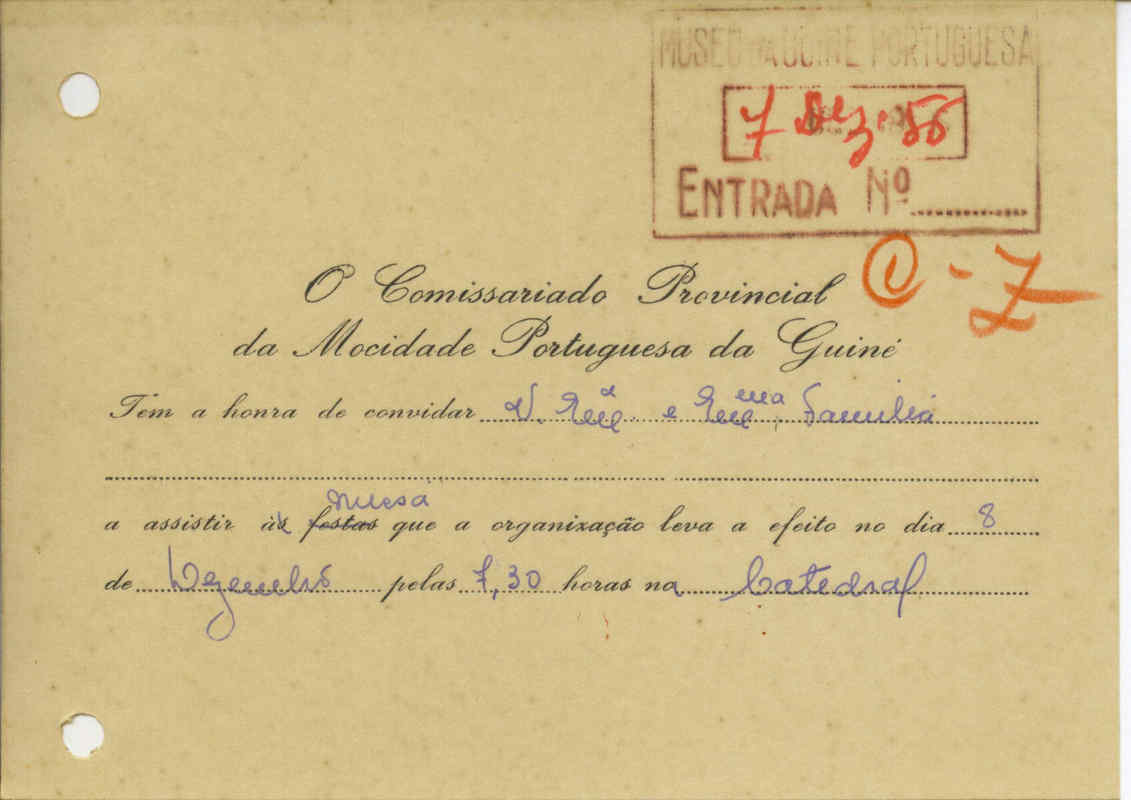 MUSEU DA GUINÉ PORTUGUESA
7 Dez. 56
ENTRADA Nº
C - 7
O Comissariado Provincial
da Mocidade Portuguesa da Guiné
Têm a honra de convidar V. Exª e Exma Familia
missa
a assistir às festas que a organização leva a efeito no dia 8
de Dezembro pelas 7,30 horas na Catedral